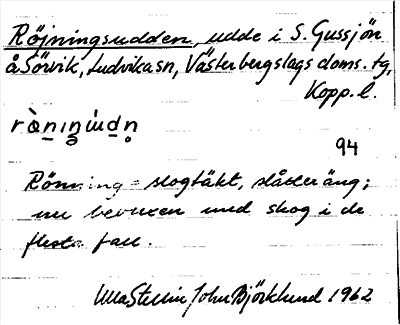 Röjningsudden, udde i S. Gussjön
å Sörvik, Ludvika sn, Västerbergslags doms. tg,
Kopp. l.
94
Rönning = slogtäkt, slåtteräng;
nu bevuxen med skog i de
flesta fall.
Ulla Stellin John Björklund 1962